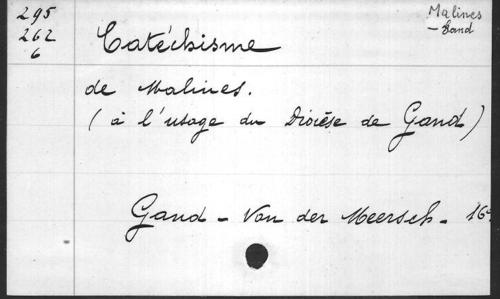 295
262
6
Malines
- Gand
Catéchisme
de Malines.
(à l'usage du Diocèse de Gand)
Gand - Van der Meersch - 16